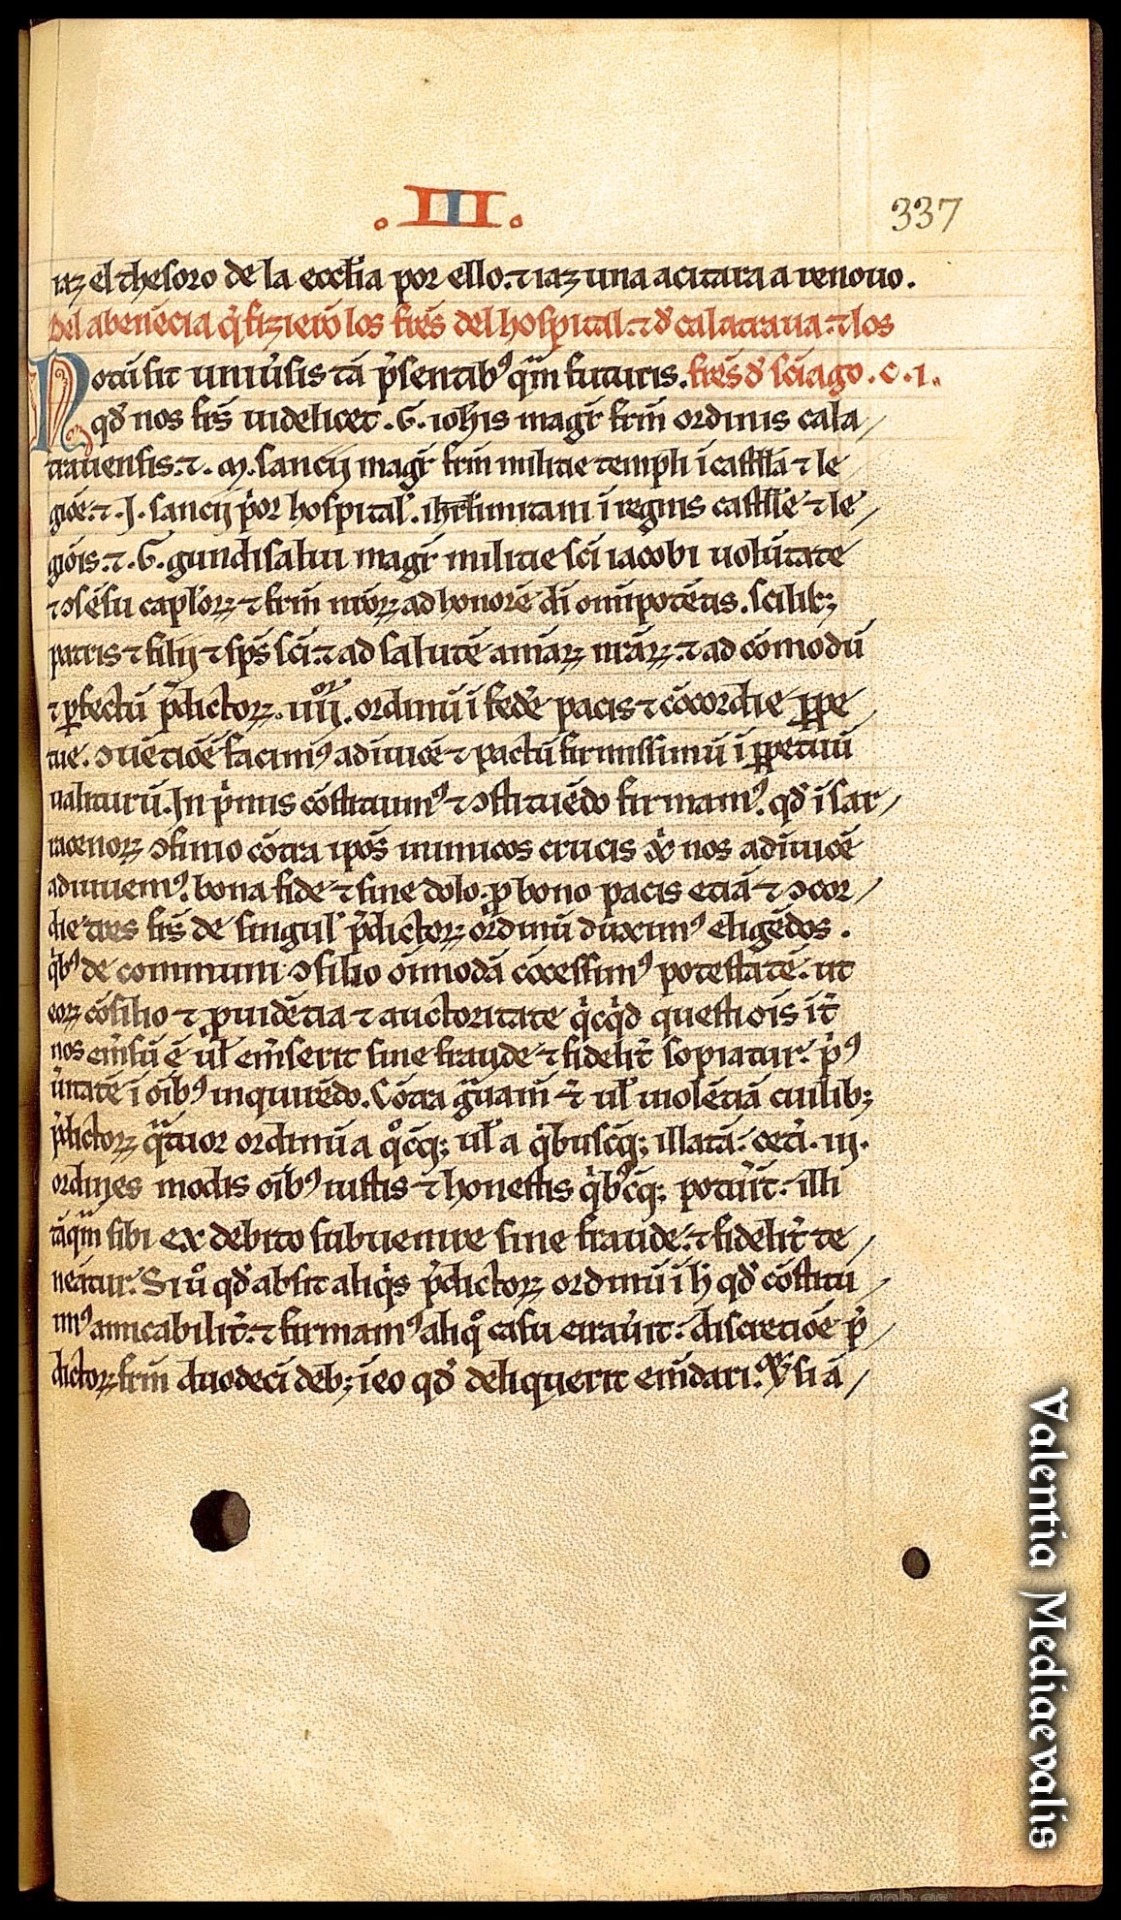 .III.
337
iaz el thesoro de la ecclia por ello. ⁊ iaz una acitara a renouo.
Del abenẽcia q̃ fizierõ los fres̃ del hospital. ⁊ đ calatraua. ⁊ los
Notũ sit uniũsis tã p̃sentibꝰ qͣm futuris. fres̃ đ sc̃iago. C. I.
qđ nos frs̃ uidelicet. G. ioh̃is magr̃ frm̃ ordinis cala/
trauensis. ⁊. M. sancij magr̃ frm̃ militie templi ĩ castll̃a ⁊ le
gioẽ. ⁊. J. sancij p̃or hospital̃. ihrl̃imitani ĩ regnis castll̃e ⁊ le/
giõis. ⁊. G. gundisalui magr̃ militie sc̃i iacobi uolũtate
⁊ ↄsẽsu capl̃oꝝ ⁊ frm̃ nr̃oꝝ ad honorẽ dĩ omĩpotẽtis. scilibꝫ
patris ⁊ filij ⁊ sps̃ sc̃i. ⁊ ad salutẽ amãꝝ nr̃aꝝ. ⁊ ad cõmodũ
⁊ ꝑfectũ p̃dictoꝝ. iiijor. ordinũ ĩ federe pacis ⁊ cõcordie ꝑpe/
tue. ↄuẽtioẽ facimꝰ adĩuicẽ ⁊ pactũ firmissimũ ĩ ꝑpetuũ
ualiturũ. In p̃mis cõstituimꝰ ⁊ ↄstituẽdo firmamꝰ. qđ ĩ sar/
racenoꝝ ↄfinio cõtra ip̃os inimicos crucis xp̃i nos adĩuicẽ
adiuuemꝰ. bona fide ⁊ sine dolo. ꝓ bono pacis etiã ⁊ ↄcor/
die tres frs̃ de singul̃ p̃dictoꝝ ordinũ duximꝰ eligẽdos.
qͥbꝰ de communi ↄsilio oĩmodã cõcessimꝰ potestatẽ. ut
eoꝝ cõsilio ⁊ ꝓuidẽtia ⁊ auctoritate qͥcqͥd questiõis it̃
nos em̃sũ ẽ ul̃ em̃serit sine fraude ⁊ fidelit̃ sopiatur. pͥꝰ
ũitatẽ ĩ oĩbꝰ inquirẽdo. Cõtra ul̃ uiolẽtiã cuilibꝫ
p̃dictoꝝ qͣtuor ordinũ a qͦcũqꝫ ul̃ a qͥbuscũqꝫ illatã. cet̃i. iij.
ordines modis oĩbꝰ iustis ⁊ honestis qͥbꝰcũqꝫ potũit. illi
tãqͣm sibi ex debito subuenire sine fraude. ⁊ fidelit̃ te/
neãtur. Si uͦ qđ absit aliqͥs p̃dictoꝝ ordinũ ĩ h̃ qđ cõstitui/
mꝰ amicabilit̃. ⁊ firmamꝰ aliqͦ casu erraũit. discretioẽ p̃/
dictoꝝ frm̃ duodecĩ debꝫ ĩ eo qđ deliquerit em̃dari. si ã/
Valentia Mediaevalis